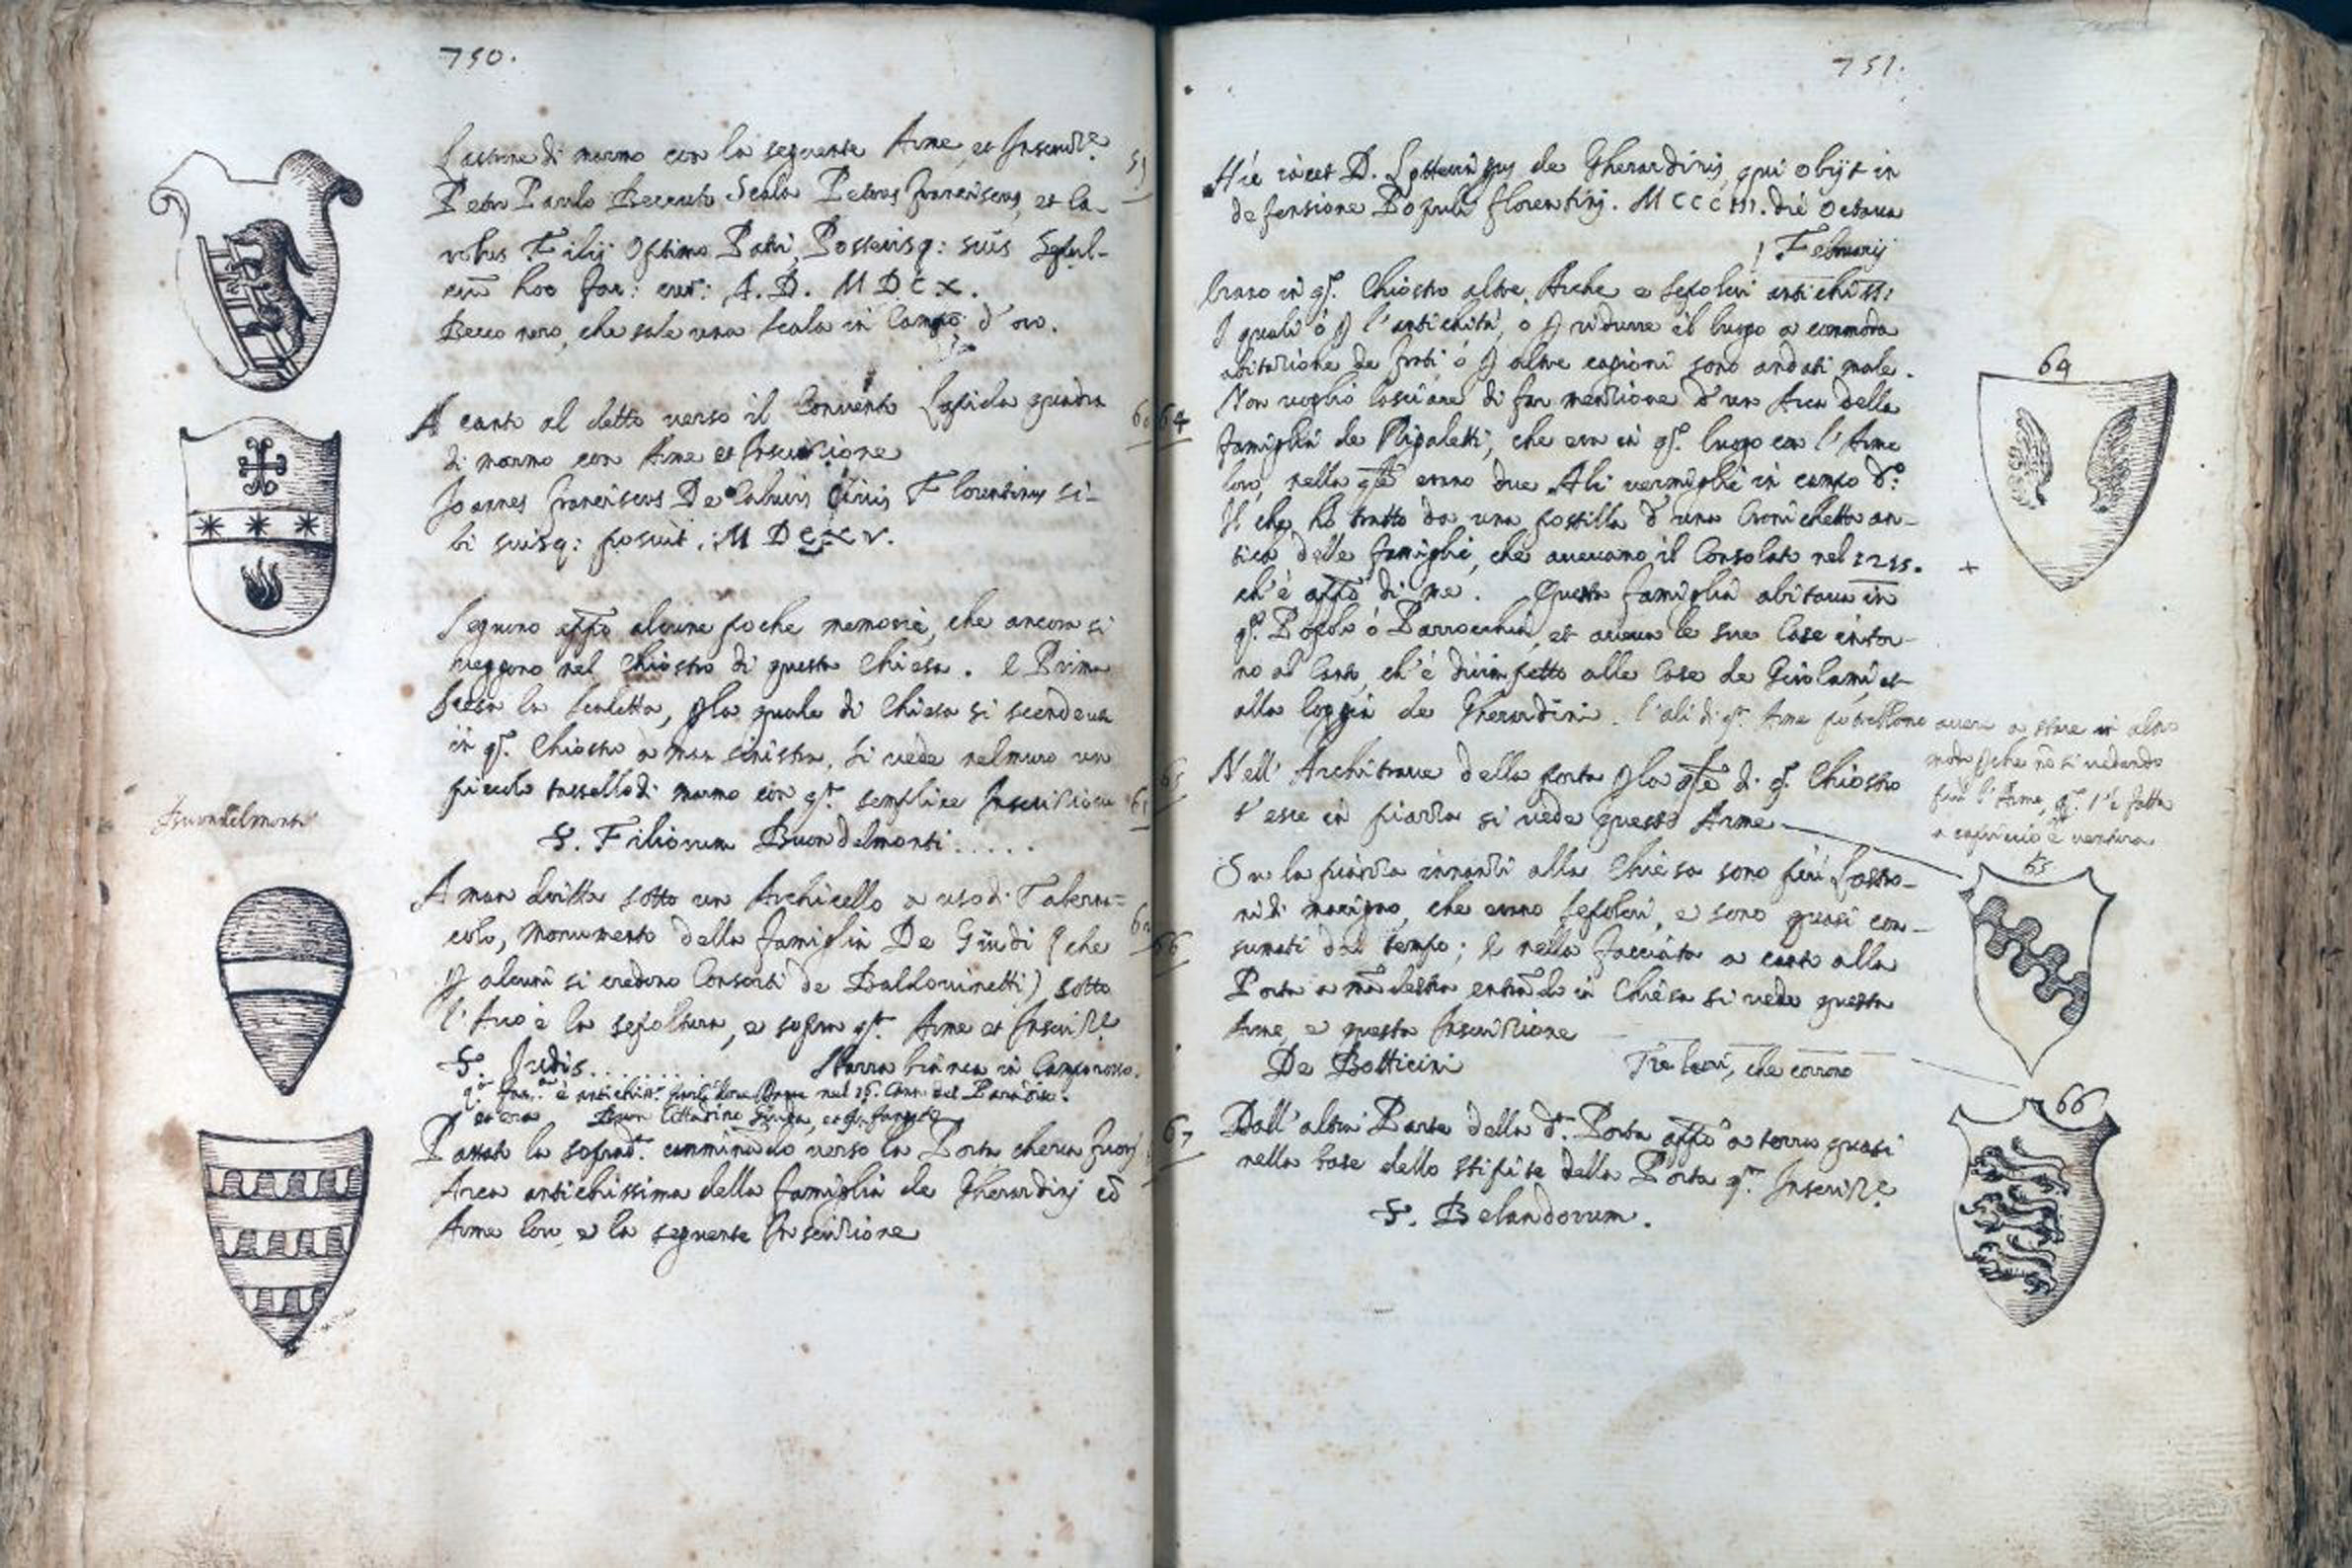 750.
Lastrone di marmo con la seguente Arme, et Inscriz.e
59
Petro Paulo Beccuto Scala Petrus Franciscus, et Ca-
rolus Filij Optimo Patri, Posterisq: suis Sepul-
hoc fac: A. D. MDCX.
Becco nero, che sale una scala in Campo d'oro.
A canto al detto verso il Convento Lapida quadra
60
di marmo con Arme et Inscrizione
Joannes Franciscus De Civis Florentinus si-
bi suisq: posuit. MDCXV.
Seguono app.o alcune poche memorie, che ancora si
veggono nel Chiostro di questa Chiesa. E Prima
Scesa la scaletta, p la quale di Chiesa si scendeva
in q.o Chiostro a man sinistra, si vede nel muro un
piccolo tassello di marmo con q.ta semplice Inscrizione
61
Buondelmonti
S. Filiorum Buondelmonti.....
A man dritta sotto un Archicello a uso di Taberna=
62
colo, Monumento della famiglia De Giudi (che
p alcuni si credono Consorti de Baldovinetti) sotto
l'Arco è la sepoltura, e sopra q.ta Arme et Inscriz.e
S. Judis........ Sbarra bianca in Campo rosso.
è antichiss.a Dante nel 16. Cant. del Paradiso.
Buon Cittadino
Passato la soprad.a camminando verso la Porta che va fuori
Arca antichissima della famiglia de Gherardini cō
Arme loro, e la seguente Inscrizione
751.
Hic iacet D. de Gherardinis, qui obijt in
defensione Populi Florentini. MCCCIII. die Octava
Februarij
Erano in q.o Chiostro altre Arche e sepolcri antichiss.i
I quali ò p l'antichità, o p ridurre il luogo a commoda
abitazione de frati ò p altre cagioni sono andati male.
64
Non voglio lasciare di far menzione d'un Arca della
famiglia de Rigaletti, che era in q.o luogo con l'Arme
loro, nella q.le erano due Ali vermiglie in campo d'o:
Il che ho tratto da una postilla d'una Cronichetta an-
tica delle famiglie, che avevano il Consolato nel 1215.
ch'è app.o di me. Questa famiglia abitava in
q.o Popolo ò Parrocchia, et aveva le sue Case intor-
no al Canto, ch'è dirimpetto alle Case de Girolami, et
alla loggia de Gherardini. l'ali di q.ta Arme potrebbono avere a stare in altro
modo p che nō si vedendo
più l'Arme, q.ta s'è fatta
a capriccio è ventura
64
65
Nell'Architrave della porta p la q.le di q.o Chiostro
s'esce in piazza si vede questa Arme
65
Su la piazza innanzi alla Chiesa sono più Lastro-
ni di macigno, che erano sepolcri, e sono quasi con-
66
sumati dal tempo; E nella facciata a canto alla
Porta a mā destra entrādo in Chiesa si vede questa
Arme, e questa Inscrizione
De Botticini Tre leoni, che corrono
66
67
Dall'altra Parte della d.a Porta app.o a terra quasi
nella base dello stipite della Porta q.ta Inscriz.e
S. Belandorum.